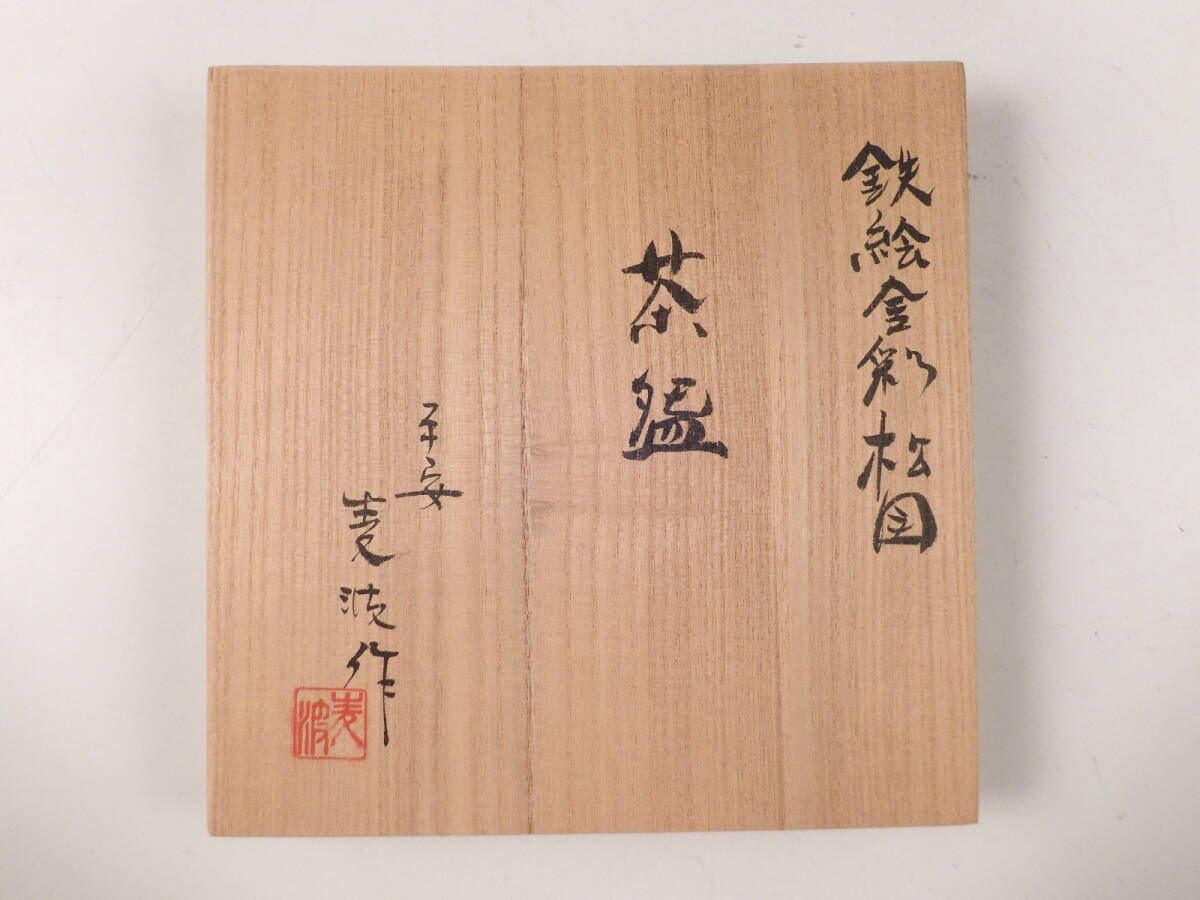 鉄絵金彩松図
茶盌
平安
麦波作
麦波